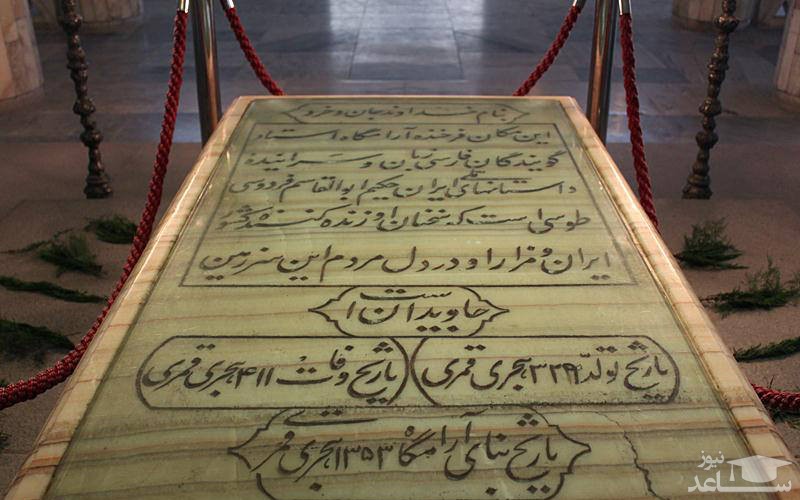 بنام خداوند جان و خرد
این مکان فرخنده آرامگاه استاد
گویندگان فارسی زبان و سراینده
داستانهای ملی ایران حکیم ابوالقاسم فردوسی
طوسی است که سخنان او زنده کننده کشور
ایران و مزار او در دل مردم این سرزمین
جاویدان است
تاریخ تولد ۳۲۹ هجری قمری
تاریخ وفات ۴۱۱ هجری قمری
تاریخ بنای آرامگاه ۱۳۵۳ هجری قمری
نیوز
ساعد